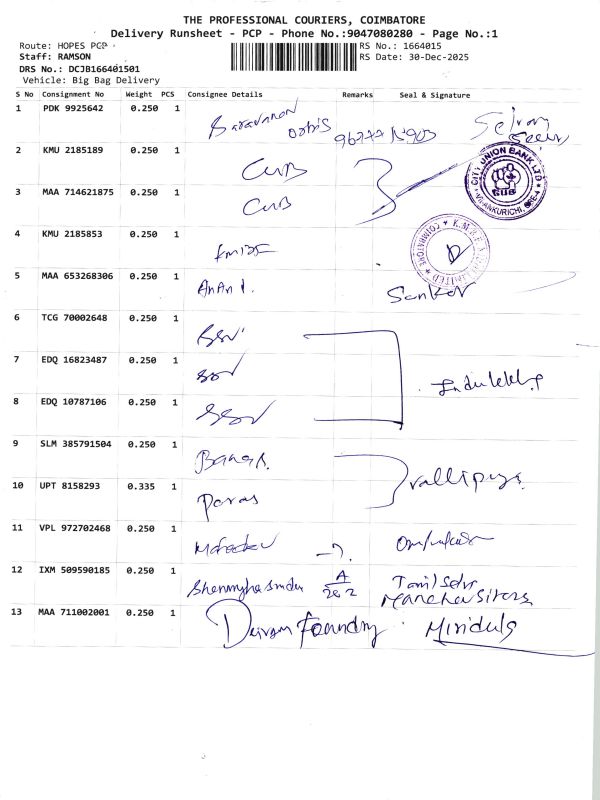 THE PROFESSIONAL COURIERS, COIMBATORE
Delivery Runsheet - PCP - Phone No.:9047080280 - Page No.:1
Route: HOPES PCP
RS No.: 1664015
Staff: RAMSON
RS Date: 30-Dec-2025
DRS No.: DCJB166401501
Vehicle: Big Bag Delivery
S No Consignment No Weight PCS Consignee Details Remarks Seal & Signature
1 PDK 9925642 0.250 1 Saravanan
2 KMU 2185189 0.250 1 CUB
CITY UNION BANK LTD
CUB
3 MAA 714621875 0.250 1 CUB
4 KMU 2185853 0.250 1
COIMBATORE
5 MAA 653268306 0.250 1 Anand. Sankar
6 TCG 70002648 0.250 1 SSV
7 EDQ 16823487 0.250 1 SSV
8 EDQ 10787106 0.250 1 SSV
9 SLM 385791504 0.250 1
10 UPT 8158293 0.335 1 Paras
11 VPL 972702468 0.250 1
12 IXM 509590185 0.250 1
13 MAA 711002001 0.250 1 Foundry